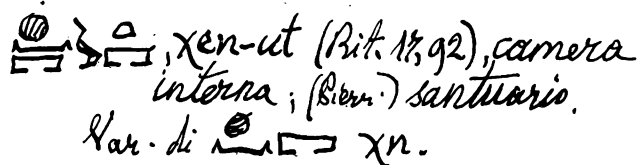 𓐍𓈖𓅱𓏏𓉐, χen-ut (Rit. 17, 92), camera
interna; (Pierr.) santuario.
Var. di 𓐍𓈖𓉐 χn.